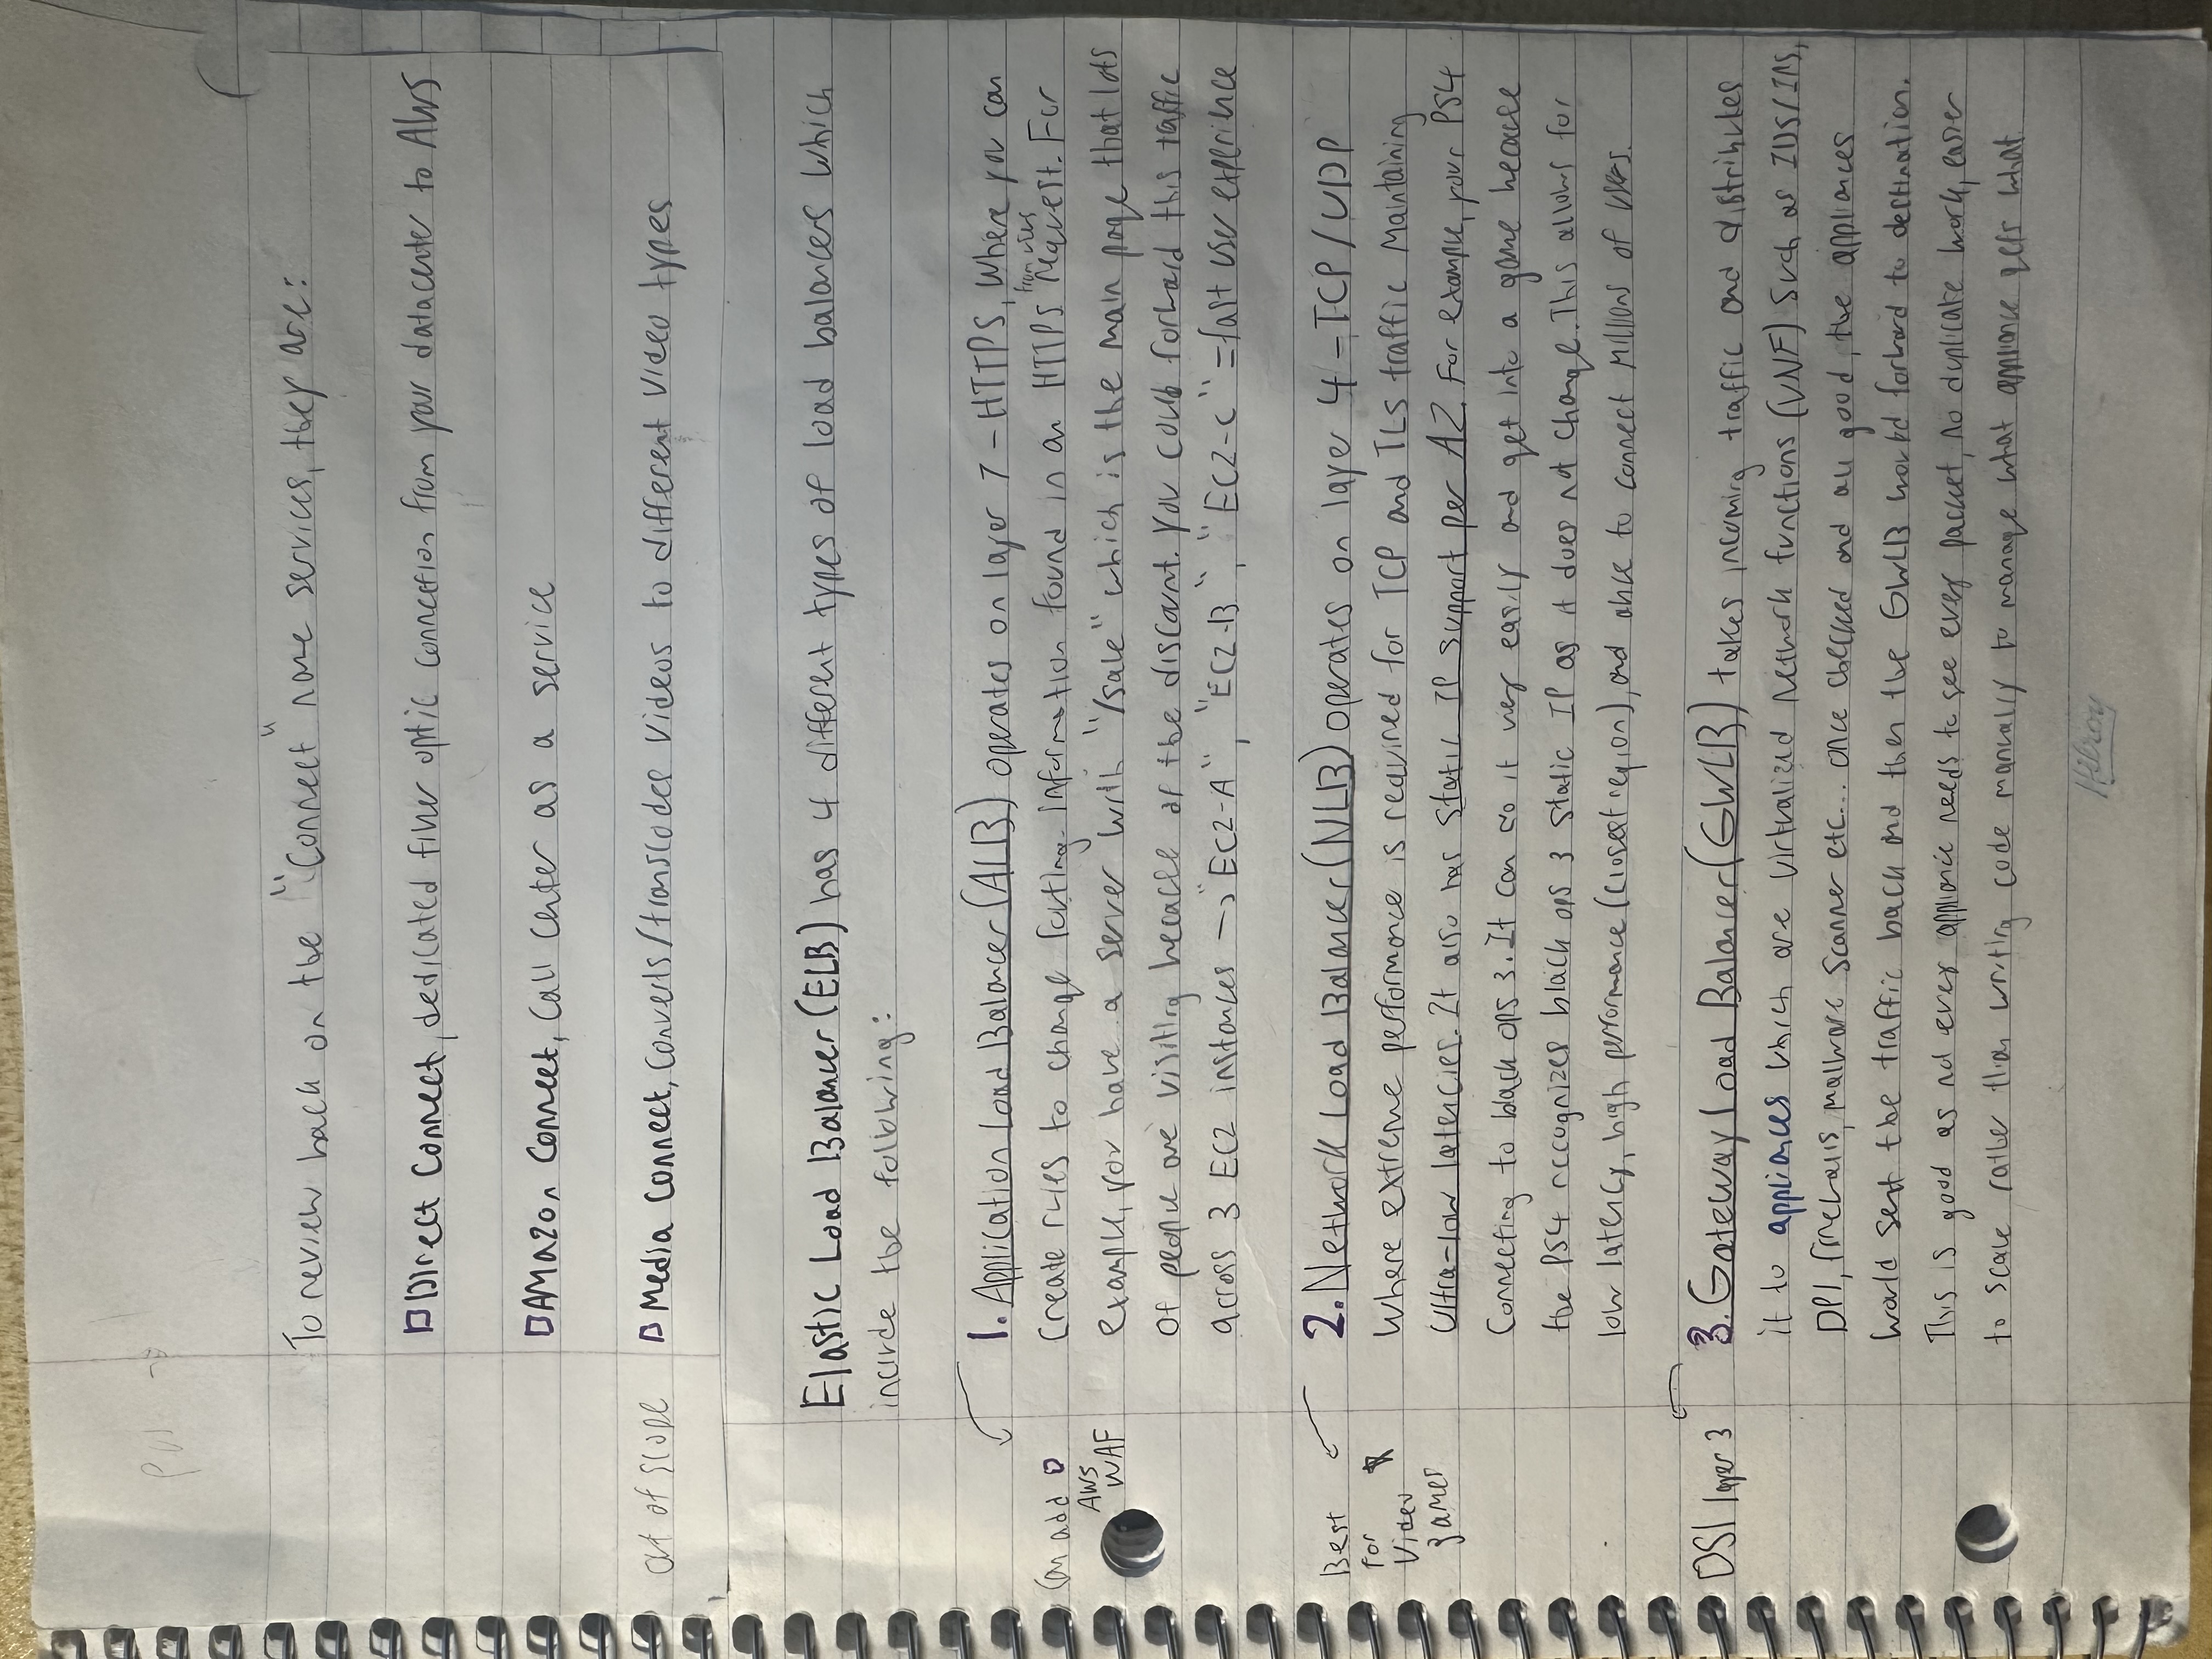 To review back on the "Connect" name services, they are:
Direct Connect, dedicated fiber optic connection from your datacenter to AWS
Amazon Connect, Call Center as a service
out of scope
Media Connect, Converts/transcodes Videos to different Video types
Elastic Load Balancer (ELB) has 4 different types of load balancers which
include the following:
1. Application Load Balancer (ALB) operates on layer 7 - HTTPS, Where you can
from users
Create rules to change routing information found in an HTTPS request. For
Can add
AWS
WAF
example, you have a server with "/sale" which is the main page that lots
of people are visiting because of the discount. You could forward this traffic
across 3 EC2 instances → "EC2-A", "EC2-B", "EC2-C" = fast user experience
2. Network Load Balancer (NLB) operates on layer 4 - TCP/UDP
Best
for
Video
games
Where extreme performance is required for TCP and TLS traffic Maintaining
Ultra-low latencies. It also has Static IP support per AZ. For example, your PS4
Connecting to black ops 3. It can do it very easily and get into a game because
the PS4 recognizes black ops 3 static IP as it does not change. This allows for
low latency, high performance (closest region), and able to connect Millions of users.
OSI layer 3
3. Gateway Load Balancer (GWLB) takes incoming traffic and distributes
it to appliances which are Virtualized Network functions (VNF) Such as IDS/IPS,
DPI, firewalls, malware scanner etc... once checked and all good, the appliances
would sent the traffic back and then the GWLB would forward to destination.
This is good as not every appliance needs to see every packet, no duplicate work, easier
to scale rather than writing code manually to manage what appliance gets what
Hilroy